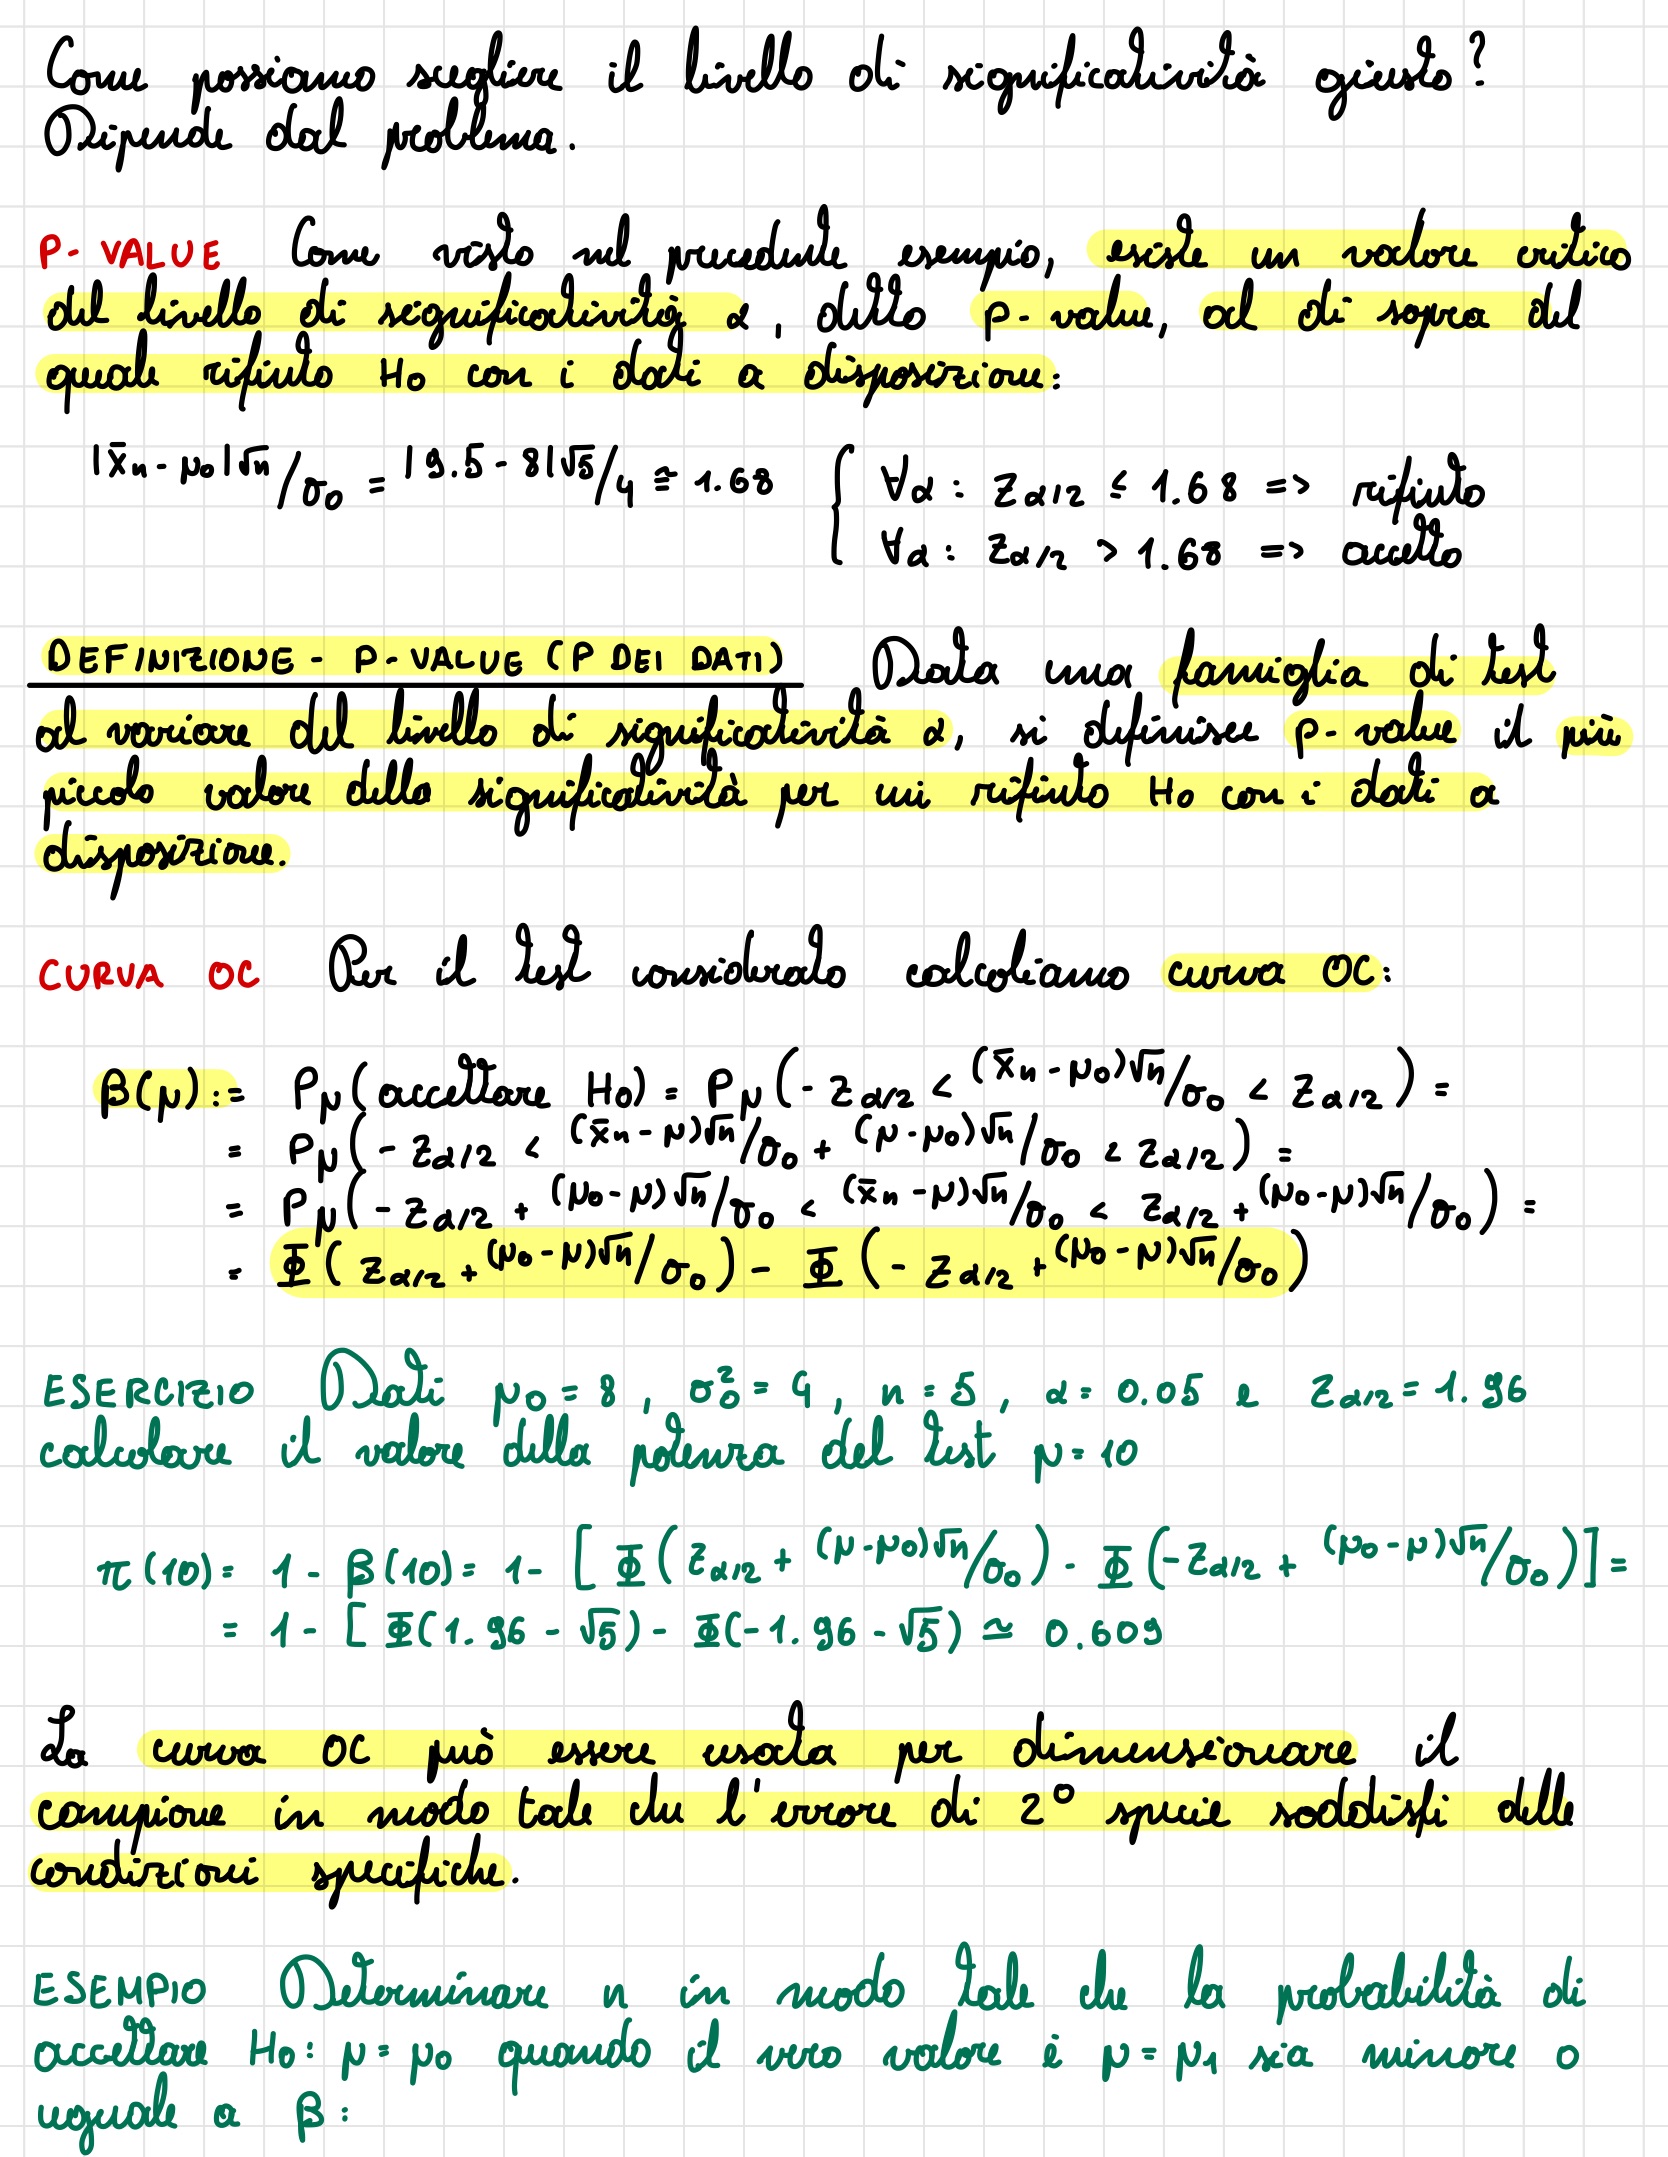 Come possiamo scegliere il livello di significatività giusto?
Dipende dal problema.
P-VALUE Come visto nel precedente esempio, esiste un valore critico
del livello di significatività α, detto p-value, al di sopra del
quale rifiuto H₀ con i dati a disposizione:
|x̄n - μ₀|√n/σ₀ = |9.5 - 8|√5/4 ≅ 1.68 { ∀α : zα/2 ≤ 1.68 => rifiuto
∀α : zα/2 > 1.68 => accetto
DEFINIZIONE - P-VALUE (P DEI DATI) Data una famiglia di test
al variare del livello di significatività α, si definisce p-value il più
piccolo valore della significatività per cui rifiuto H₀ con i dati a
disposizione.
CURVA OC Per il test considerato calcoliamo curva OC:
β(μ) := Pμ(accettare H₀) = Pμ(-zα/2 < (x̄n - μ₀)√n/σ₀ < zα/2) =
= Pμ(-zα/2 < (x̄n - μ)√n/σ₀ + (μ - μ₀)√n/σ₀ < zα/2) =
= Pμ(-zα/2 + (μ₀ - μ)√n/σ₀ < (x̄n - μ)√n/σ₀ < zα/2 + (μ₀ - μ)√n/σ₀) =
= Φ(zα/2 + (μ₀ - μ)√n/σ₀) - Φ(-zα/2 + (μ₀ - μ)√n/σ₀)
ESERCIZIO Dati μ₀ = 8, σ₀² = 4, n = 5, α = 0.05 e zα/2 = 1.96
calcolare il valore della potenza del test μ = 10
π(10) = 1 - β(10) = 1 - [Φ(zα/2 + (μ - μ₀)√n/σ₀) - Φ(-zα/2 + (μ₀ - μ)√n/σ₀)] =
= 1 - [Φ(1.96 - √5) - Φ(-1.96 - √5) ≃ 0.609
La curva OC può essere usata per dimensionare il
campione in modo tale che l'errore di 2° specie soddisfi delle
condizioni specifiche.
ESEMPIO Determinare n in modo tale che la probabilità di
accettare H₀: μ = μ₀ quando il vero valore è μ = μ₁ sia minore o
uguale a β: